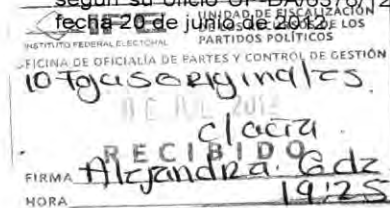 según su oficio UF-DA/6376/12
fecha 20 de junio de 2012.
UNIDAD DE FISCALIZACIÓN
DE LOS
PARTIDOS POLÍTICOS
INSTITUTO FEDERAL ELECTORAL
OFICINA DE OFICIALÍA DE PARTES Y CONTROL DE GESTIÓN
10 Fojas originales
clacra
RECIBIDO
FIRMA Alejandra Gdz
HORA 19:25